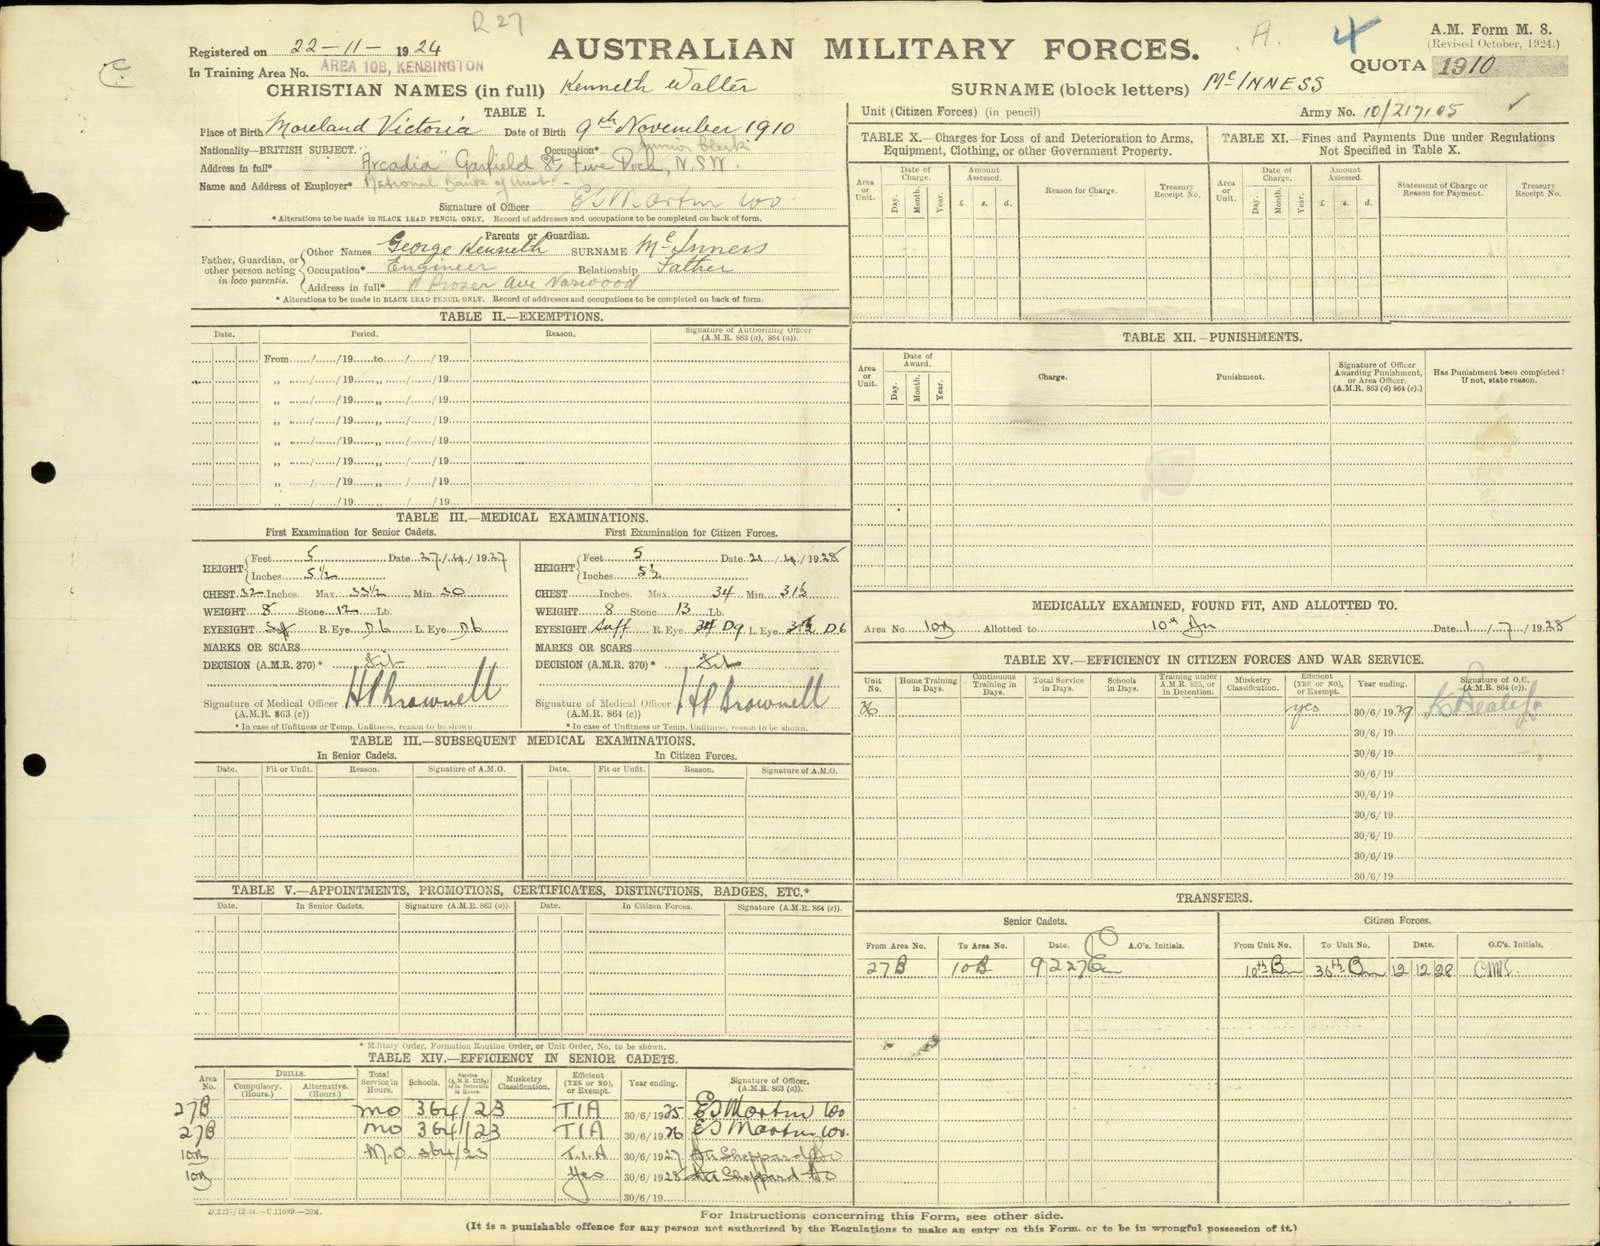 R 27
Registered on 22-11-1924
AUSTRALIAN MILITARY FORCES.
A. 4
A.M. Form M. 8.
(Revised October, 1924.)
In Training Area No. AREA 10B, KENSINGTON
QUOTA 1910
CHRISTIAN NAMES (in full) Kenneth Walter
SURNAME (block letters) McINNESS
TABLE I.
Place of Birth Moreland Victoria Date of Birth 9th November 1910
Nationality—BRITISH SUBJECT. Occupation* Junior Clerk
Address in full* "Arcadia" Garfield St, Five Dock, N.S.W.
Name and Address of Employer* National Bank of
Signature of Officer E S Martin WO
* Alterations to be made in BLACK LEAD PENCIL ONLY. Record of addresses and occupations to be completed on back of form.
Parents or Guardian.
Father, Guardian, or other person acting in loco parentis.
Other Names George Kenneth SURNAME McInness
Occupation* Engineer Relationship Father
Address in full* Ave
* Alterations to be made in BLACK LEAD PENCIL ONLY. Record of addresses and occupations to be completed on back of form.
TABLE II.—EXEMPTIONS.
Date. Period. Reason. Signature of Authorizing Officer (A.M.R. 863 (a), 864 (a)).
From....../....../19......to....../....../19......
,, ....../....../19......,,....../....../19......
,, ....../....../19......,,....../....../19......
,, ....../....../19......,,....../....../19......
,, ....../....../19......,,....../....../19......
,, ....../....../19......,,....../....../19......
,, ....../....../19......,,....../....../19......
....../....../19......,,....../....../19......
TABLE III.—MEDICAL EXAMINATIONS.
First Examination for Senior Cadets.
HEIGHT Feet 5 Date 27/4/1927
Inches 5½
CHEST 32 Inches. Max. 33½ Min. 30
WEIGHT 8 Stone 12 Lb.
EYESIGHT Suff R. Eye D6 L. Eye D6
MARKS OR SCARS
DECISION (A.M.R. 370)* Fit
Signature of Medical Officer H P Brownell
(A.M.R. 863 (c))
* In case of Unfitness or Temp. Unfitness, reason to be shown.
First Examination for Citizen Forces.
HEIGHT Feet 5 Date 21/4/1928
Inches 5½
CHEST Inches. Max. 34 Min. 31½
WEIGHT 8 Stone 13 Lb.
EYESIGHT Suff R. Eye D9 L. Eye D6
MARKS OR SCARS
DECISION (A.M.R. 370)* Fit
Signature of Medical Officer H P Brownell
(A.M.R. 864 (c))
* In case of Unfitness or Temp. Unfitness, reason to be shown.
TABLE III.—SUBSEQUENT MEDICAL EXAMINATIONS.
In Senior Cadets. In Citizen Forces.
Date. Fit or Unfit. Reason. Signature of A.M.O. Date. Fit or Unfit. Reason. Signature of A.M.O.
TABLE V.—APPOINTMENTS, PROMOTIONS, CERTIFICATES, DISTINCTIONS, BADGES, ETC.*
Date. In Senior Cadets. Signature (A.M.R. 863 (c)). Date. In Citizen Forces. Signature (A.M.R. 864 (c)).
* Military Order, Formation Routine Order, or Unit Order, No. to be shown.
TABLE XIV.—EFFICIENCY IN SENIOR CADETS.
Area No. DRILLS. Compulsory. (Hours.) Alternative. (Hours.) Total Service in Hours. Schools. Musketry Classification. Efficient (YES or NO), or Exempt. Year ending. Signature of Officer. (A.M.R. 863 (a)).
27B MO 364/23 TIA 30/6/1925 E S Martin WO
27B MO 364/23 TIA 30/6/1926 E S Martin WO.
10B M.O. 364/23 T.I.A 30/6/1927 Sheppard
10B Yes 30/6/1928 Sheppard
30/6/19
Unit (Citizen Forces) (in pencil)
Army No. 10/217105
TABLE X.—Charges for Loss of and Deterioration to Arms, Equipment, Clothing, or other Government Property.
Area or Unit. Date of Charge. Day. Month. Year. Amount Assessed. £ s. d. Reason for Charge. Treasury Receipt No.
TABLE XI.—Fines and Payments Due under Regulations Not Specified in Table X.
Area or Unit. Date of Charge. Day. Month. Year. Amount Assessed. £ s. d. Statement of Charge or Reason for Payment. Treasury Receipt No.
TABLE XII.—PUNISHMENTS.
Area or Unit. Date of Award. Day. Month. Year. Charge. Punishment. Signature of Officer Awarding Punishment, or Area Officer. (A.M.R. 863 (d) 864 (c).) Has Punishment been completed? If not, state reason.
MEDICALLY EXAMINED, FOUND FIT, AND ALLOTTED TO.
Area No. 10B Allotted to 10th Bn Date 1/7/1928
TABLE XV.—EFFICIENCY IN CITIZEN FORCES AND WAR SERVICE.
Unit No. Home Training in Days. Continuous Training in Days. Total Service in Days. Schools in Days. Training under A.M.R. 865, or in Detention. Musketry Classification. Efficient (YES or NO), or Exempt. Year ending. Signature of O.C. (A.M.R. 864 (c)).
36 yes 30/6/1929
30/6/19
30/6/19
30/6/19
30/6/19
30/6/19
30/6/19
30/6/19
30/6/19
TRANSFERS.
Senior Cadets. Citizen Forces.
From Area No. To Area No. Date. A.O's. Initials. From Unit No. To Unit No. Date. O.C's. Initials.
27B 10B 9 2 27 10th Bn 36th Bn 12 12 28
For Instructions concerning this Form, see other side.
(It is a punishable offence for any person not authorized by the Regulations to make an entry on this Form, or to be in wrongful possession of it.)